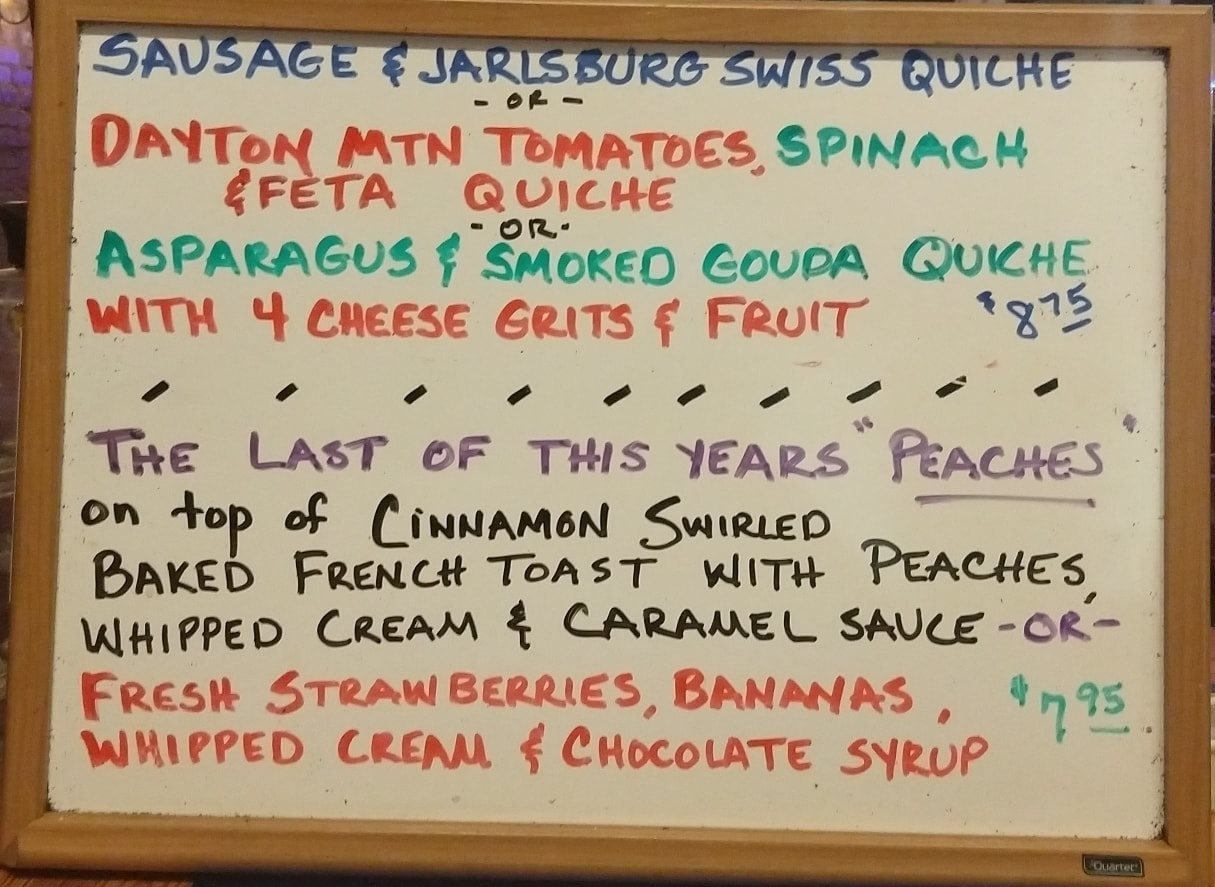 SAUSAGE & JARLSBURG SWISS QUICHE
- OR -
DAYTON MTN TOMATOES, SPINACH
& FETA QUICHE
- OR -
ASPARAGUS & SMOKED GOUDA QUICHE
WITH 4 CHEESE GRITS & FRUIT $8.75
THE LAST OF THIS YEARS "PEACHES"
on top of CINNAMON SWIRLED
BAKED FRENCH TOAST WITH PEACHES,
WHIPPED CREAM & CARAMEL SAUCE -OR-
FRESH STRAWBERRIES, BANANAS, $7.95
WHIPPED CREAM & CHOCOLATE SYRUP
Quartet